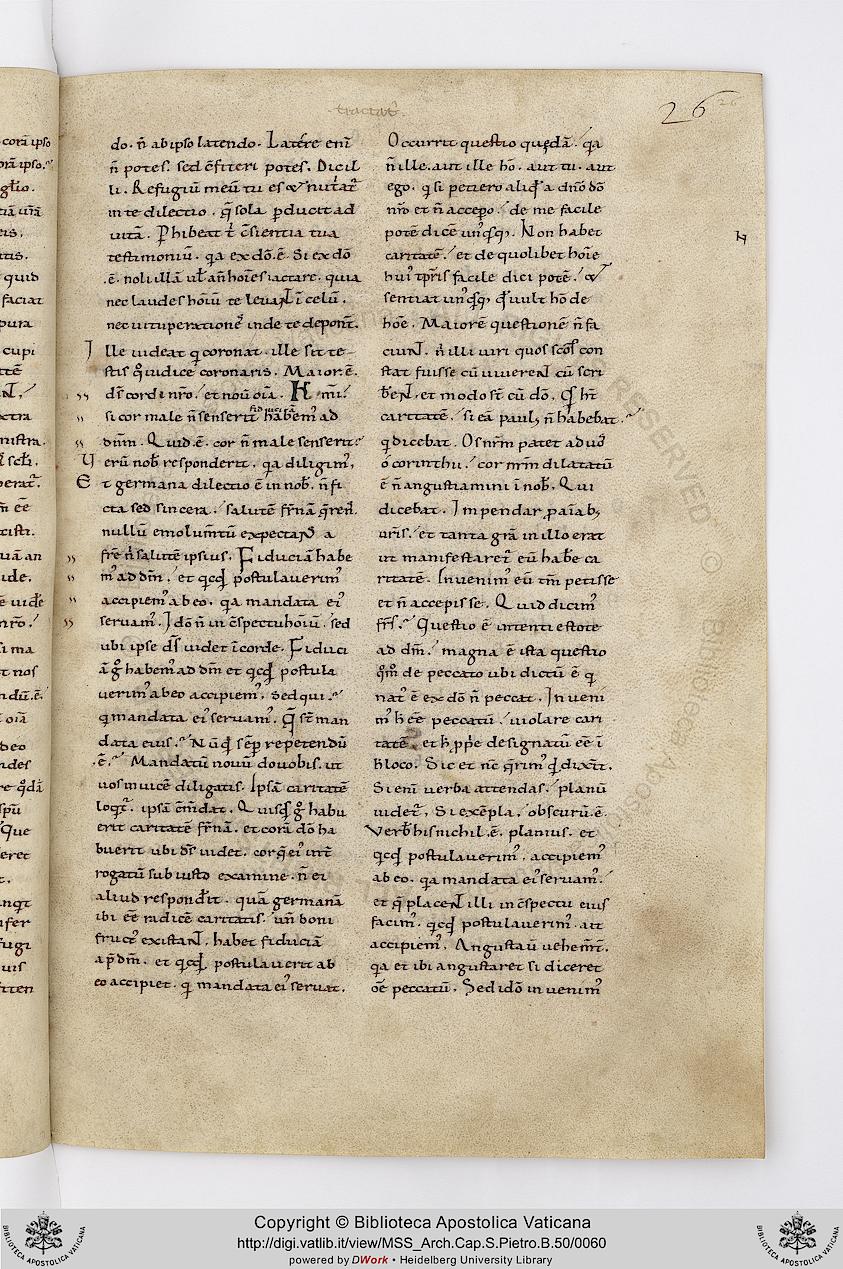 tractat᷒.
26
26
do. n̄ ab ipso latendo. Latere enī
n̄ potes. sed c̄fiteri potes. Dic il
li. Refugiū meū tu es & nutat᷒
in te dilectio. q̄ sola p̄ducit ad
uitā. Phibeat t᷒ c̄sientia tua
testimoniū. q̄a ex dō. ē. Si ex dō
.ē. noli illā ul̄ an̄ hoīes iactare. quia
nec laudes hoīū te leuant ī celū.
nec uituperatione᷒ inde te deponn̄t.
Ille uideat q̄ coronat. ille sit te-
stis q̄ iudice coronaris. Maior. ē.
ds̄ corde nr̄o. et nouit oīa. K mī.
si cor male n̄ senserit fiduciā habem᷒ ad
dn̄m. Quid. ē. cor n̄ male senserit.
Uerū nob̄ responderit. q̄a diligim᷒,
Et germana dilectio ē in nob̄. n̄ fi
cta sed sincera. salutē fr̄nā q̄ren̄.
nullū emolum̄tū expectans a
fr̄e n̄ salutē ipsius. Fiduciā habe
m᷒ ad dm̄. et qcqd̄ postulauerim᷒
accipiem᷒ ab eo. q̄a mandata ei᷒
seruam᷒. Idō n̄ in c̄spectu hoīum. sed
ubi ipse ds̄ uidet ī corde. Fiduci
ā g° habem᷒ ad dm̄ et qcqd̄ postula
uerim᷒ ab eo accipiem᷒. Sed qui.
q̄ mandata ei᷒ seruam᷒. Q̄ st̄ man
data eius. Nūqd̄ sēp repetendū
.ē. Mandatū nouū do uobis. ut
uos inuicē diligatis. Ipsā caritatē
loqt᷒. ipsā c̄mdat. Quisq᷒s g° habu
erit caritatē fr̄nā. et corā dō ha
buerit ubi ds̄ uidet. corq̄ ei᷒ int̄
rogatū sub iusto examine. n̄ ei
aliud respondit. quā germanā
ibi eē radicē caritatis. un̄ boni
fruct᷒ existant. habet fiduciā
ap̄ dm̄. et qcqd̄ postulauerit ab
eo accipiet. q̄ mandata ei᷒ seruat.
Occurrit questio quedā. q̄a
n̄ ille. aut ille hō. aut tu. aut
ego. q̄ si petiero aliq̄ a dn̄o dō
nr̄o et n̄ accepo. de me facile
potē dicē un᷒q̄sq̄. Non habet
caritatē. et de quolibet hoīe
hui᷒ tp̄ris facile dici potē. &
sentiat un᷒q̄sq̄ q̄ uult hō de
hōe. Maiorē questionē n̄ fa
ciunt. n̄ illi uiri quos scos̄ con
stat fuisse cū uiuerent cū scri
b̄ent. et modo st̄ cū dō. Q̄s ht̄
caritatē. si eā paul᷒ n̄ habebat.
q̄ dicebat. Os nr̄m patet ad uo᷒
ó corinthii. cor nr̄m dilatatū
ē n̄ angustiamini ī nob̄. Qui
dicebat. Impendar p̄ aīab᷒
ur̄is. et tanta gr̄a in illo erat
ut manifestaret᷒ eū hab̄e ca
ritatē. Inuenim᷒ eū tn̄ petisse
et n̄ accepisse. Quid dicim᷒
fr̄s. Questio ē intenti estote
ad dm̄. magna ē ista questio
q̄m᷒ de peccato ubi dictū ē q̄
nat᷒ ē ex dō n̄ peccat. Inueni
m᷒ h eē peccatū. uiolare cari
tatē. et h̄ pp̄e designatū eē ī
h̄ loco. Sic et n̄c q̄rim᷒ qd̄ dixit.
Si enī uerba attendas. planū
uidet᷒. Si exēpla. obscurū. ē.
Uerb̄ his nichil. ē. planius. et
qcqd̄ postulauerim᷒. accipiem᷒
ab eo. q̄a mandata ei᷒ seruam᷒.
et q̄ placent illi in c̄spectu eius
facim᷒. qcqd̄ postulauerim᷒. ait
accipiem᷒. Angustauit uehem̄t᷒.
q̄a et ibi angustaret si diceret
oē peccatū. Sed idō inuenim᷒
Copyright © Biblioteca Apostolica Vaticana
http://digi.vatlib.it/view/MSS_Arch.Cap.S.Pietro.B.50/0060
powered by DWork • Heidelberg University Library